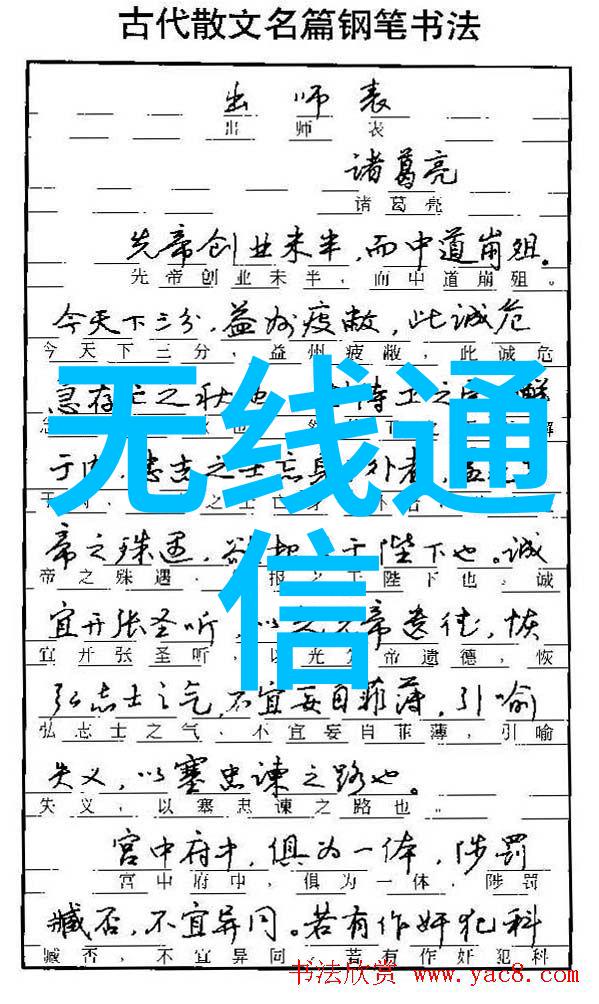 古代散文名篇钢笔书法
出师表
出师表
诸葛亮
诸葛亮
先帝创业未半，而中道崩殂。
先帝创业未半，而中道崩殂。
今天下三分，益州疲敝，此诚危
今天下三分，益州疲敝，此诚危
急存亡之秋也 侍卫之臣
于内，忠志之士忘身 外者，
无线通信
帝之殊遇，欲报 于陛下也。诚
帝之殊遇， 报之于陛下也，诚
宜开张圣听，以光先帝遗德，恢
宜开张圣听，以光先帝遗德，恢
弘志士之气，不宜妄自菲薄，引喻
弘志士之气，不宜妄自菲薄，引喻
失义，以塞忠谏之路也。
失义，以塞忠谏之路也。
宫中府中，俱为一体，陟罚
宫中府中，俱为一体，陟罚
臧否，不宜异同。若有作奸犯科
臧否，不宜异同。若有作奸犯科
书法欣赏 www.yac8.com